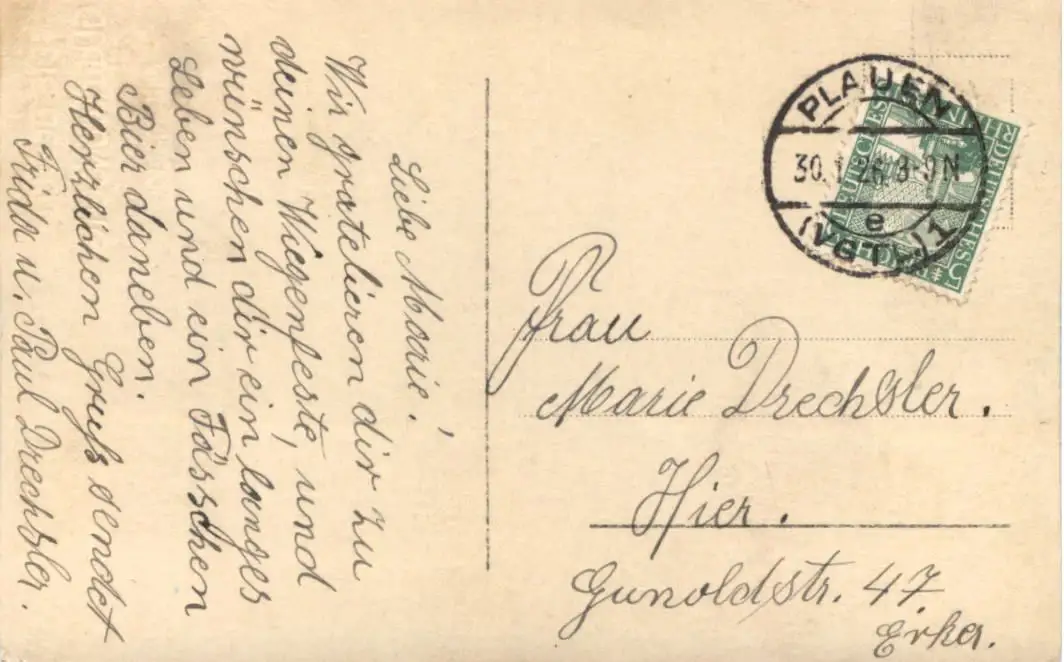 Liebe Marie!
Wir gratelieren dir zu
deinen Wiegenfeste, und
wünschen dir ein langes
Leben und ein Fässchen
Bier daneben.
Herzlichen Gruß sendet
Frida u. Paul Drechsler.
PLAUEN
30.1.26.8-9N
e
(VGTL.)1
DEUTSCHES
REICH
5
Frau
Marie Drechsler.
Hier.
Gunoldstr. 47
Erker.